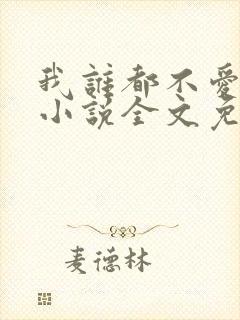 我誰都不愛
小說全文免
麦德林